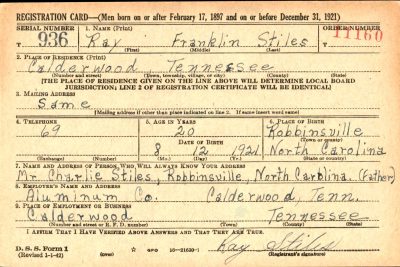 REGISTRATION CARD—(Men born on or after February 17, 1897 and on or before December 31, 1921)
SERIAL NUMBER 1. NAME (Print) ORDER NUMBER
T 936 Ray Franklin Stiles 11160
(First) (Middle) (Last)
2. PLACE OF RESIDENCE (Print)
Calderwood Tennessee
(Number and street) (Town, township, village, or city) (County) (State)
[THE PLACE OF RESIDENCE GIVEN ON THE LINE ABOVE WILL DETERMINE LOCAL BOARD
JURISDICTION; LINE 2 OF REGISTRATION CERTIFICATE WILL BE IDENTICAL]
3. MAILING ADDRESS
Same
[Mailing address if other than place indicated on line 2. If same insert word same]
4. TELEPHONE 5. AGE IN YEARS 6. PLACE OF BIRTH
69 20 Robbinsville
DATE OF BIRTH (Town or county)
8 12 1921 North Carolina
(Exchange) (Number) (Mo.) (Day) (Yr.) (State or country)
7. NAME AND ADDRESS OF PERSON WHO WILL ALWAYS KNOW YOUR ADDRESS
Mr. Charlie Stiles, Robbinsville, North Carolina. (Father)
8. EMPLOYER'S NAME AND ADDRESS
Aluminum Co. Calderwood, Tenn.
9. PLACE OF EMPLOYMENT OR BUSINESS
Calderwood Tennessee
(Number and street or R. F. D. number) (Town) (County) (State)
I AFFIRM THAT I HAVE VERIFIED ABOVE ANSWERS AND THAT THEY ARE TRUE.
D. S. S. Form 1 GPO 16—21630-1 Ray Stiles
(Revised 1-1-42) (Registrant's signature)